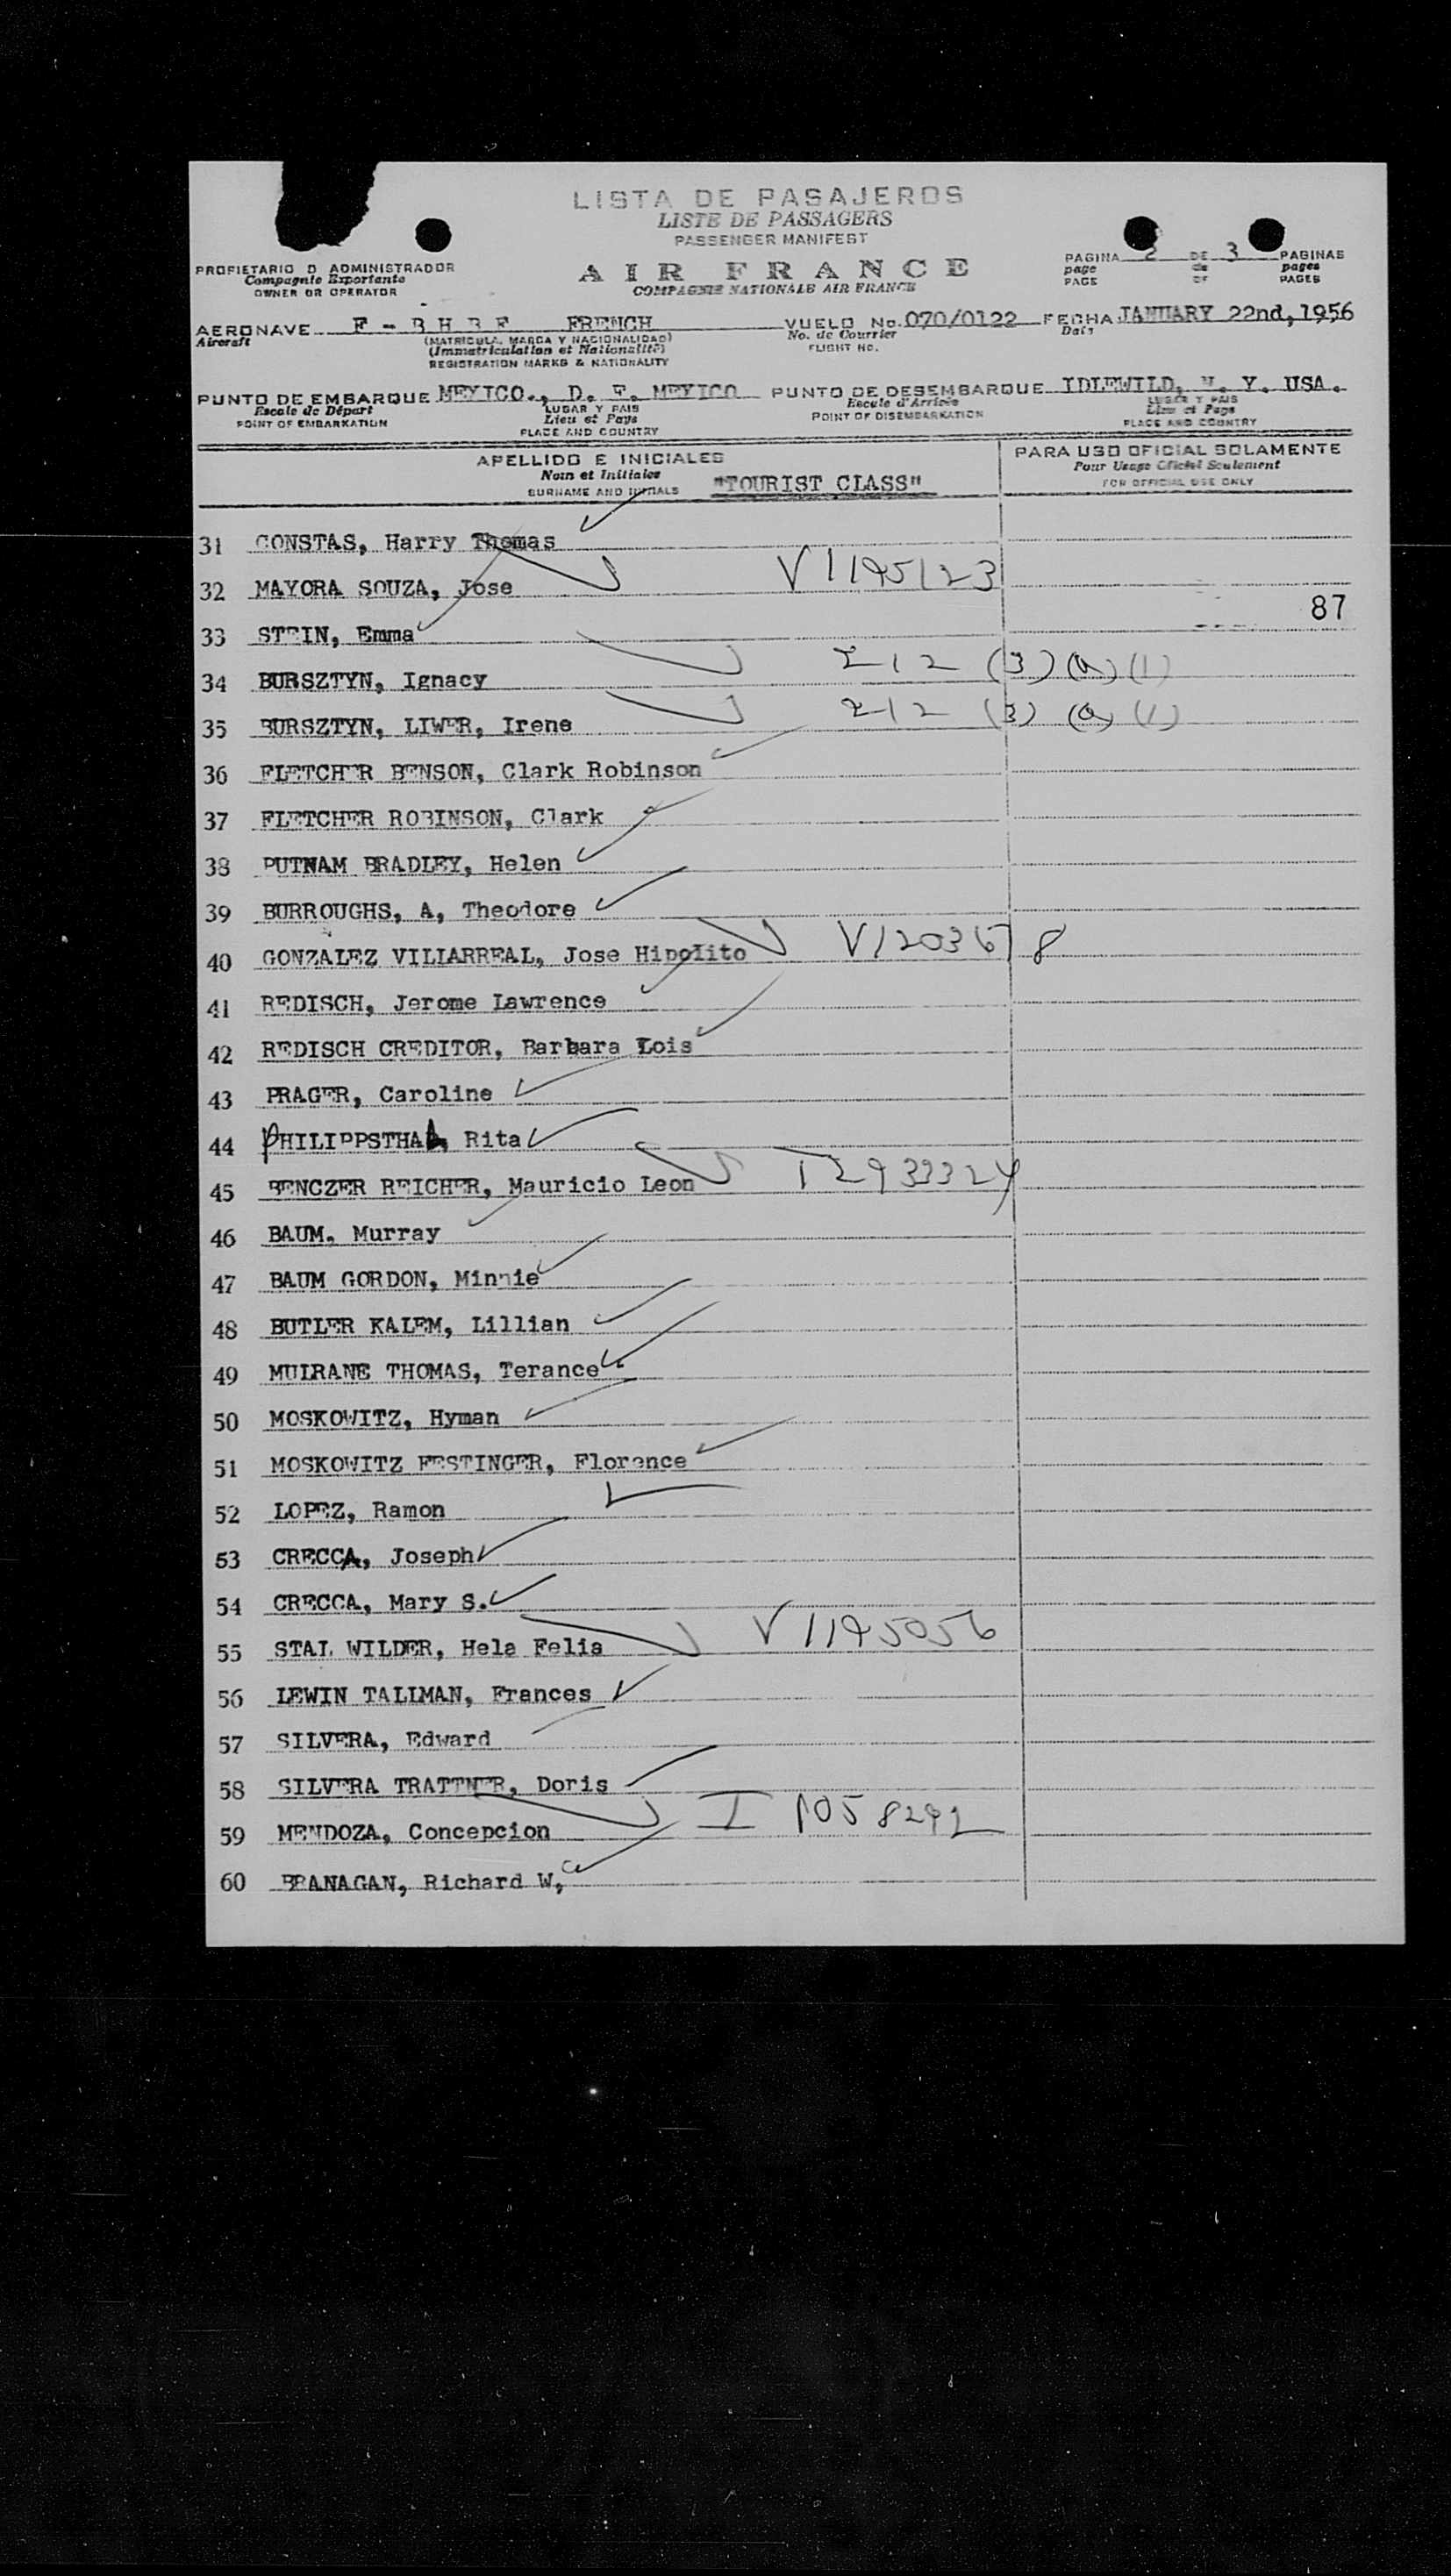 LISTA DE PASAJEROS
LISTE DE PASSAGERS
PASSENGER MANIFEST
PAGINA 2 DE 3 PAGINAS
page de pages
PAGE OF PAGES
PROPIETARIO O ADMINISTRADOR
Compagnie Exportante
OWNER OR OPERATOR
AIR FRANCE
COMPAGNIE NATIONALE AIR FRANCE
AERONAVE F - B H B F FRENCH VUELO No. 070/0122 FECHA JANUARY 22nd, 1956
Aircraft (MATRICULA, MARCA Y NACIONALIDAD) No. de Courrier Date
(Immatriculation et Nationalité) FLIGHT NO.
REGISTRATION MARKS & NATIONALITY
PUNTO DE EMBARQUE MEXICO., D. F. MEXICO PUNTO DE DESEMBARQUE IDLEWILD, N. Y. USA.
Escale de Départ LUGAR Y PAIS Escale d'Arrivée LUGAR Y PAIS
POINT OF EMBARKATION Lieu et Pays POINT OF DISEMBARKATION Lieu et Pays
PLACE AND COUNTRY PLACE AND COUNTRY
APELLIDO E INICIALES PARA USO OFICIAL SOLAMENTE
Nom et Initiales Pour Usage Officiel Seulement
SURNAME AND INITIALS "TOURIST CLASS" FOR OFFICIAL USE ONLY
31 CONSTAS, Harry Thomas
32 MAYORA SOUZA, Jose V1195123
87
33 STEIN, Emma
34 BURSZTYN, Ignacy 212 (3) (a) (1)
35 BURSZTYN, LIWER, Irene 212 (3) (a) (1)
36 FLETCHER BENSON, Clark Robinson
37 FLETCHER ROBINSON, Clark
38 PUTNAM BRADLEY, Helen
39 BURROUGHS, A, Theodore
40 GONZALEZ VILLARREAL, Jose Hipolito V1203678
41 REDISCH, Jerome Lawrence
42 REDISCH CREDITOR, Barbara Lois
43 PRAGER, Caroline
44 PHILIPPSTHAL, Rita
45 BENCZER REICHER, Mauricio Leon T2933324
46 BAUM, Murray
47 BAUM GORDON, Minnie
48 BUTLER KALEM, Lillian
49 MULRANE THOMAS, Terance
50 MOSKOWITZ, Hyman
51 MOSKOWITZ FESTINGER, Florence
52 LOPEZ, Ramon
53 CRECCA, Joseph
54 CRECCA, Mary S.
55 STAL WILDER, Hela Felia V1195056
56 LEWIN TALLMAN, Frances
57 SILVERA, Edward
58 SILVERA TRATTNER, Doris
59 MENDOZA, Concepcion I 1058292
60 BRANAGAN, Richard W,